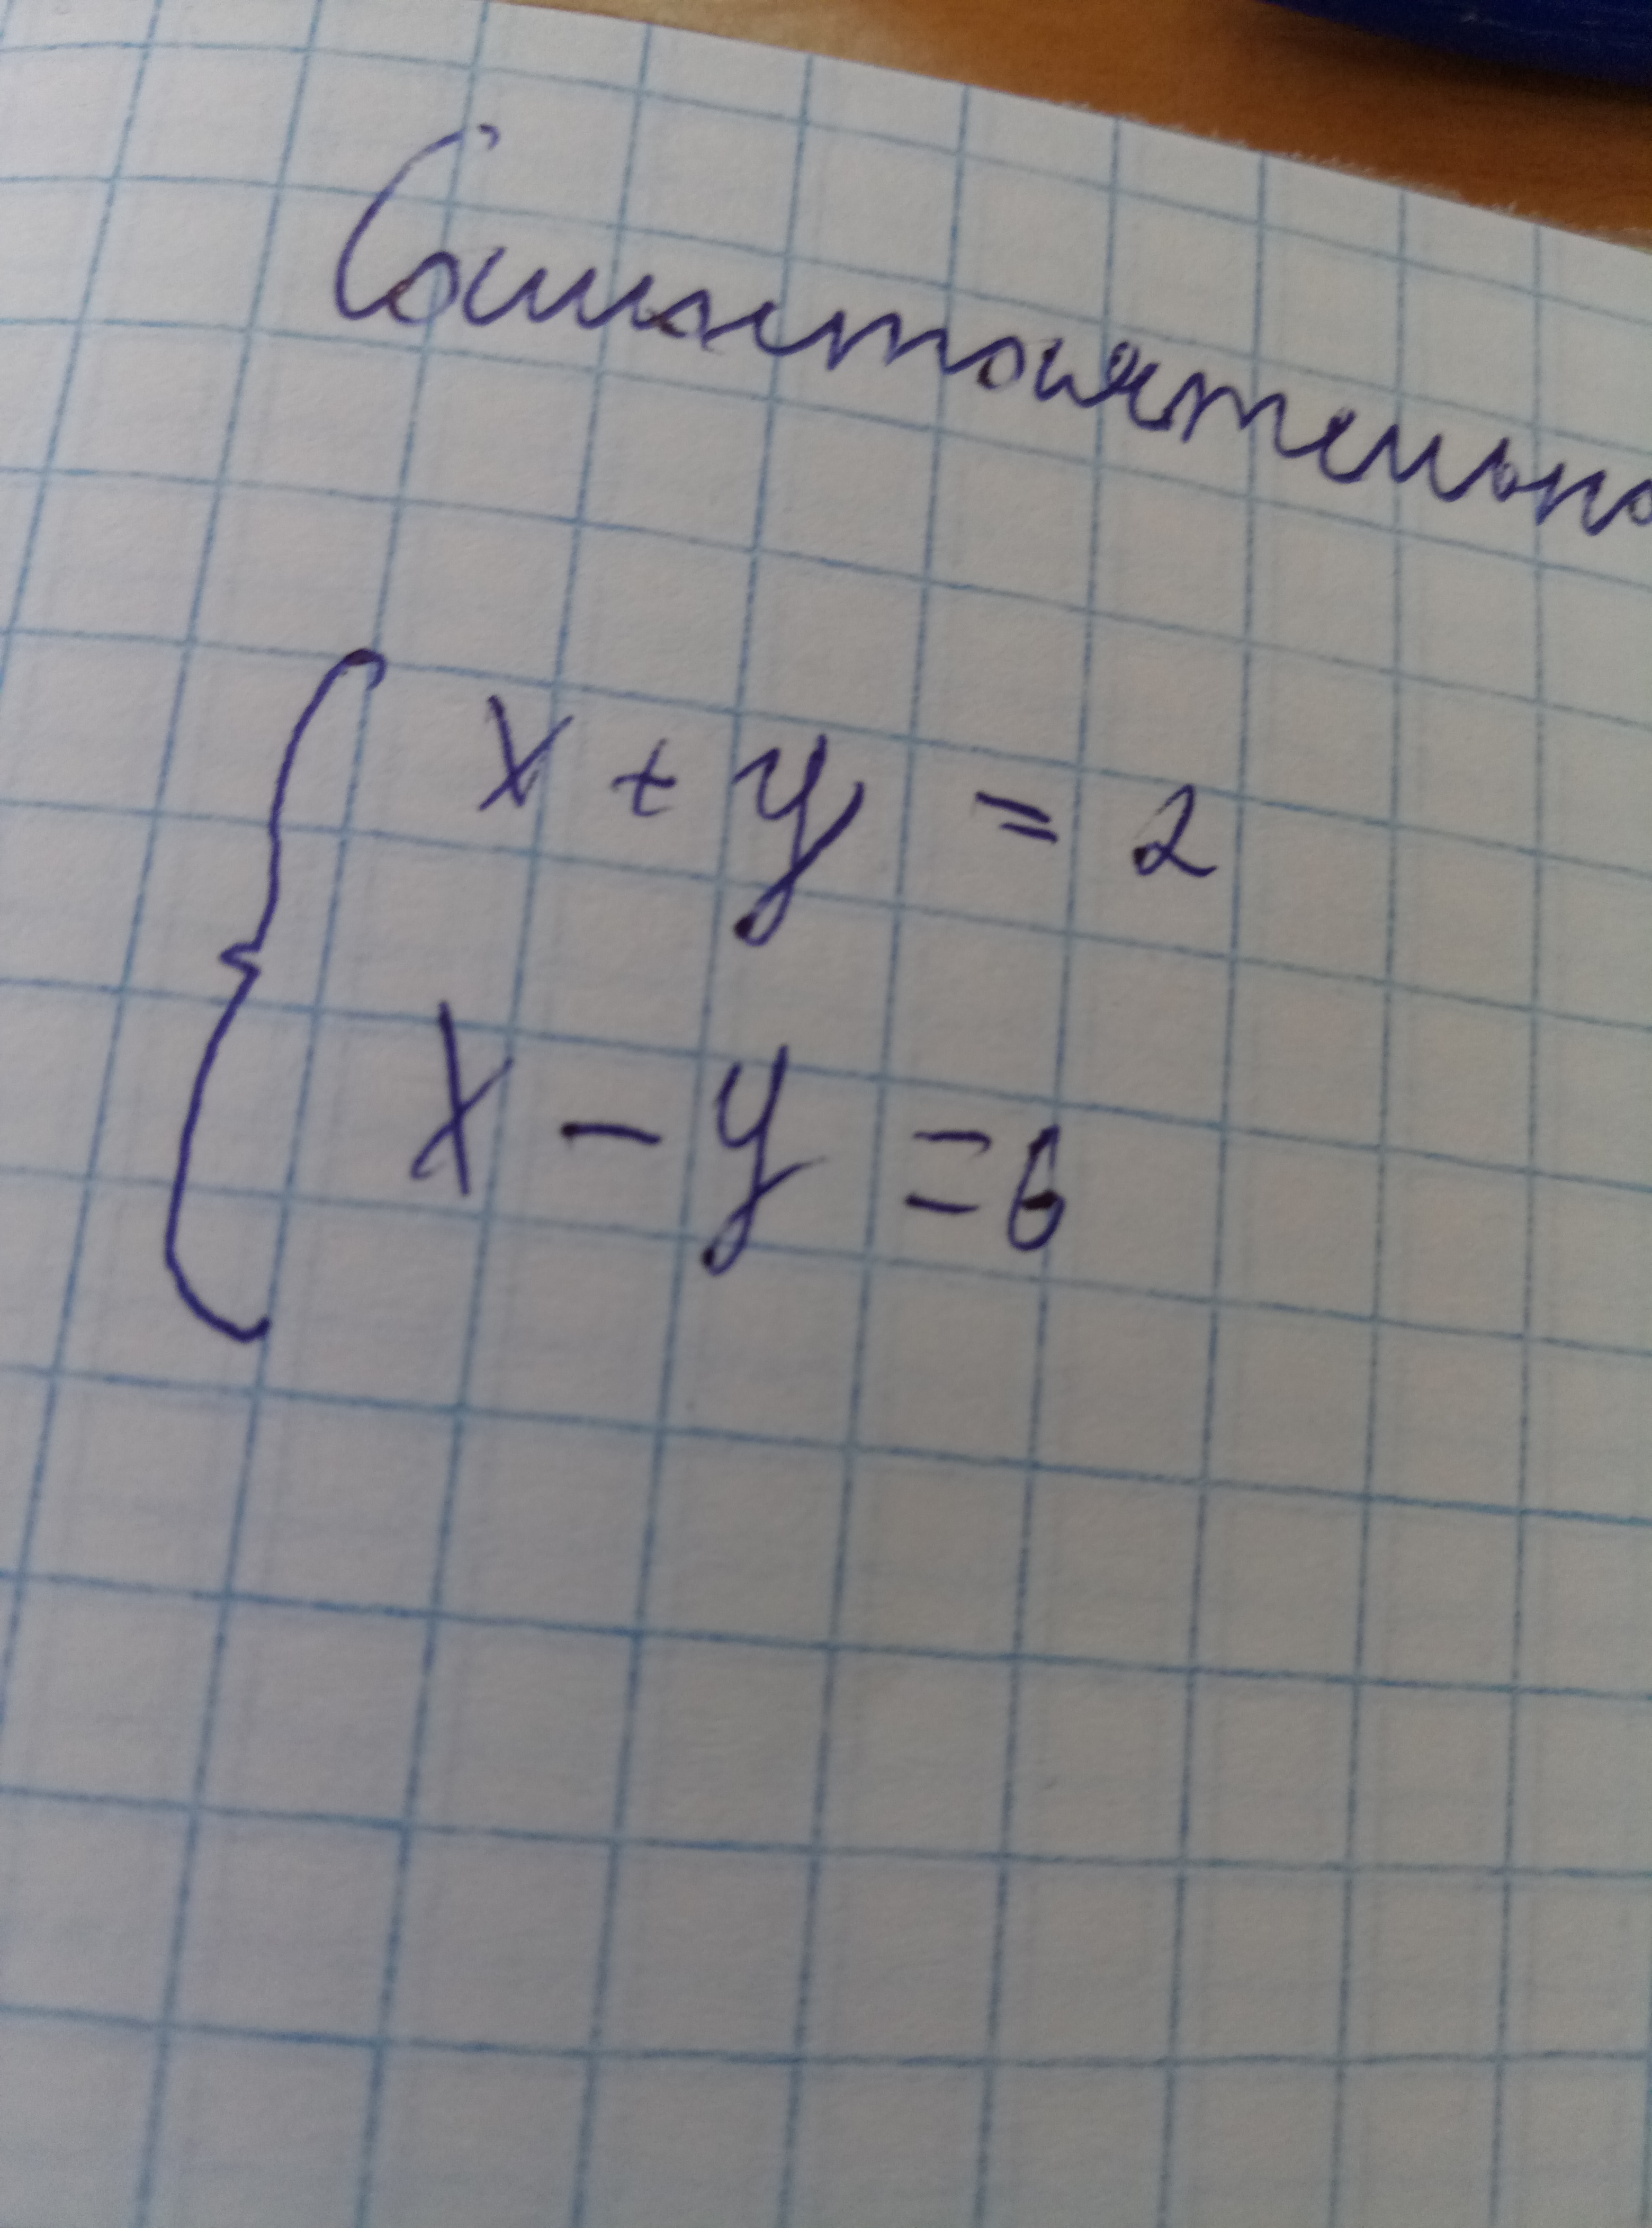 Самостоятельно
x + y = 2
x - y = 6